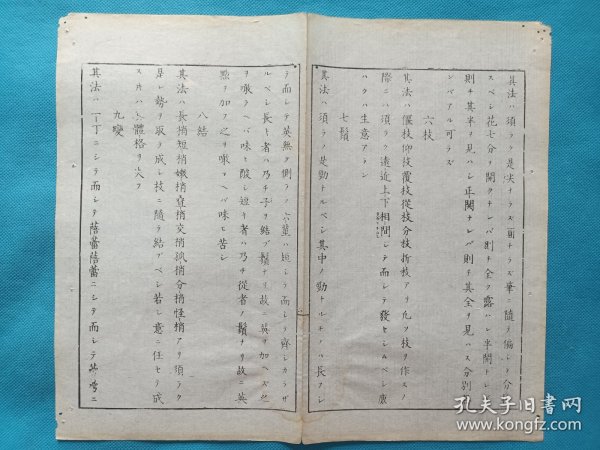 其法ハ須ラク是尖イラズ禿チラズ筆ニ隨テ偏シテ分
スベシ花七分ヲ開クナレバ則チ全ク露ハシ半開ナレバ
則チ其半ヲ見ハシ正開ナレバ則チ其全ヲ見ハス分別
ンベアル可ラズ
六枝
其法ハ偃枝仰枝覆枝從枝分枝折枝アリ凡ソ枝ヲ作スノ
際ニハ須ラク遠近上下相間シテ而シテ發セシムベシ庶
ハクハ生意アラン
七鬚
其法ハ須ラク是勁ナルベシ其中ノ勁ナル ハ長フシ
テ而シテ英無ク側ラノ六莖ハ短シテ而シテ齊シカラザ
ルベシ長キ者ハ乃チ子ヲ結ブ鬚ナリ故ニ英ヲ加ヘズ之
ヲ噉ラヘバ味ヒ酸シ短キ者ハ乃チ從者ノ鬚ナリ故ニ英
點ヲ加フ之ヲ噉ラヘバ味ヒ苦シ
八結
其法ハ長梢短梢嫩梢疊梢交梢孤梢分梢怪梢アリ須ラク
是レ勢ヲ取テ成シ枝ニ隨テ結ブベシ若シ意ニ任セテ成
ス片ハ 體格ヲ欠フ
九變
其法ハ一丁ニシテ而シテ蓓蕾蓓蕾ニシテ而シテ
孔夫子旧書网
www.kongfz.com